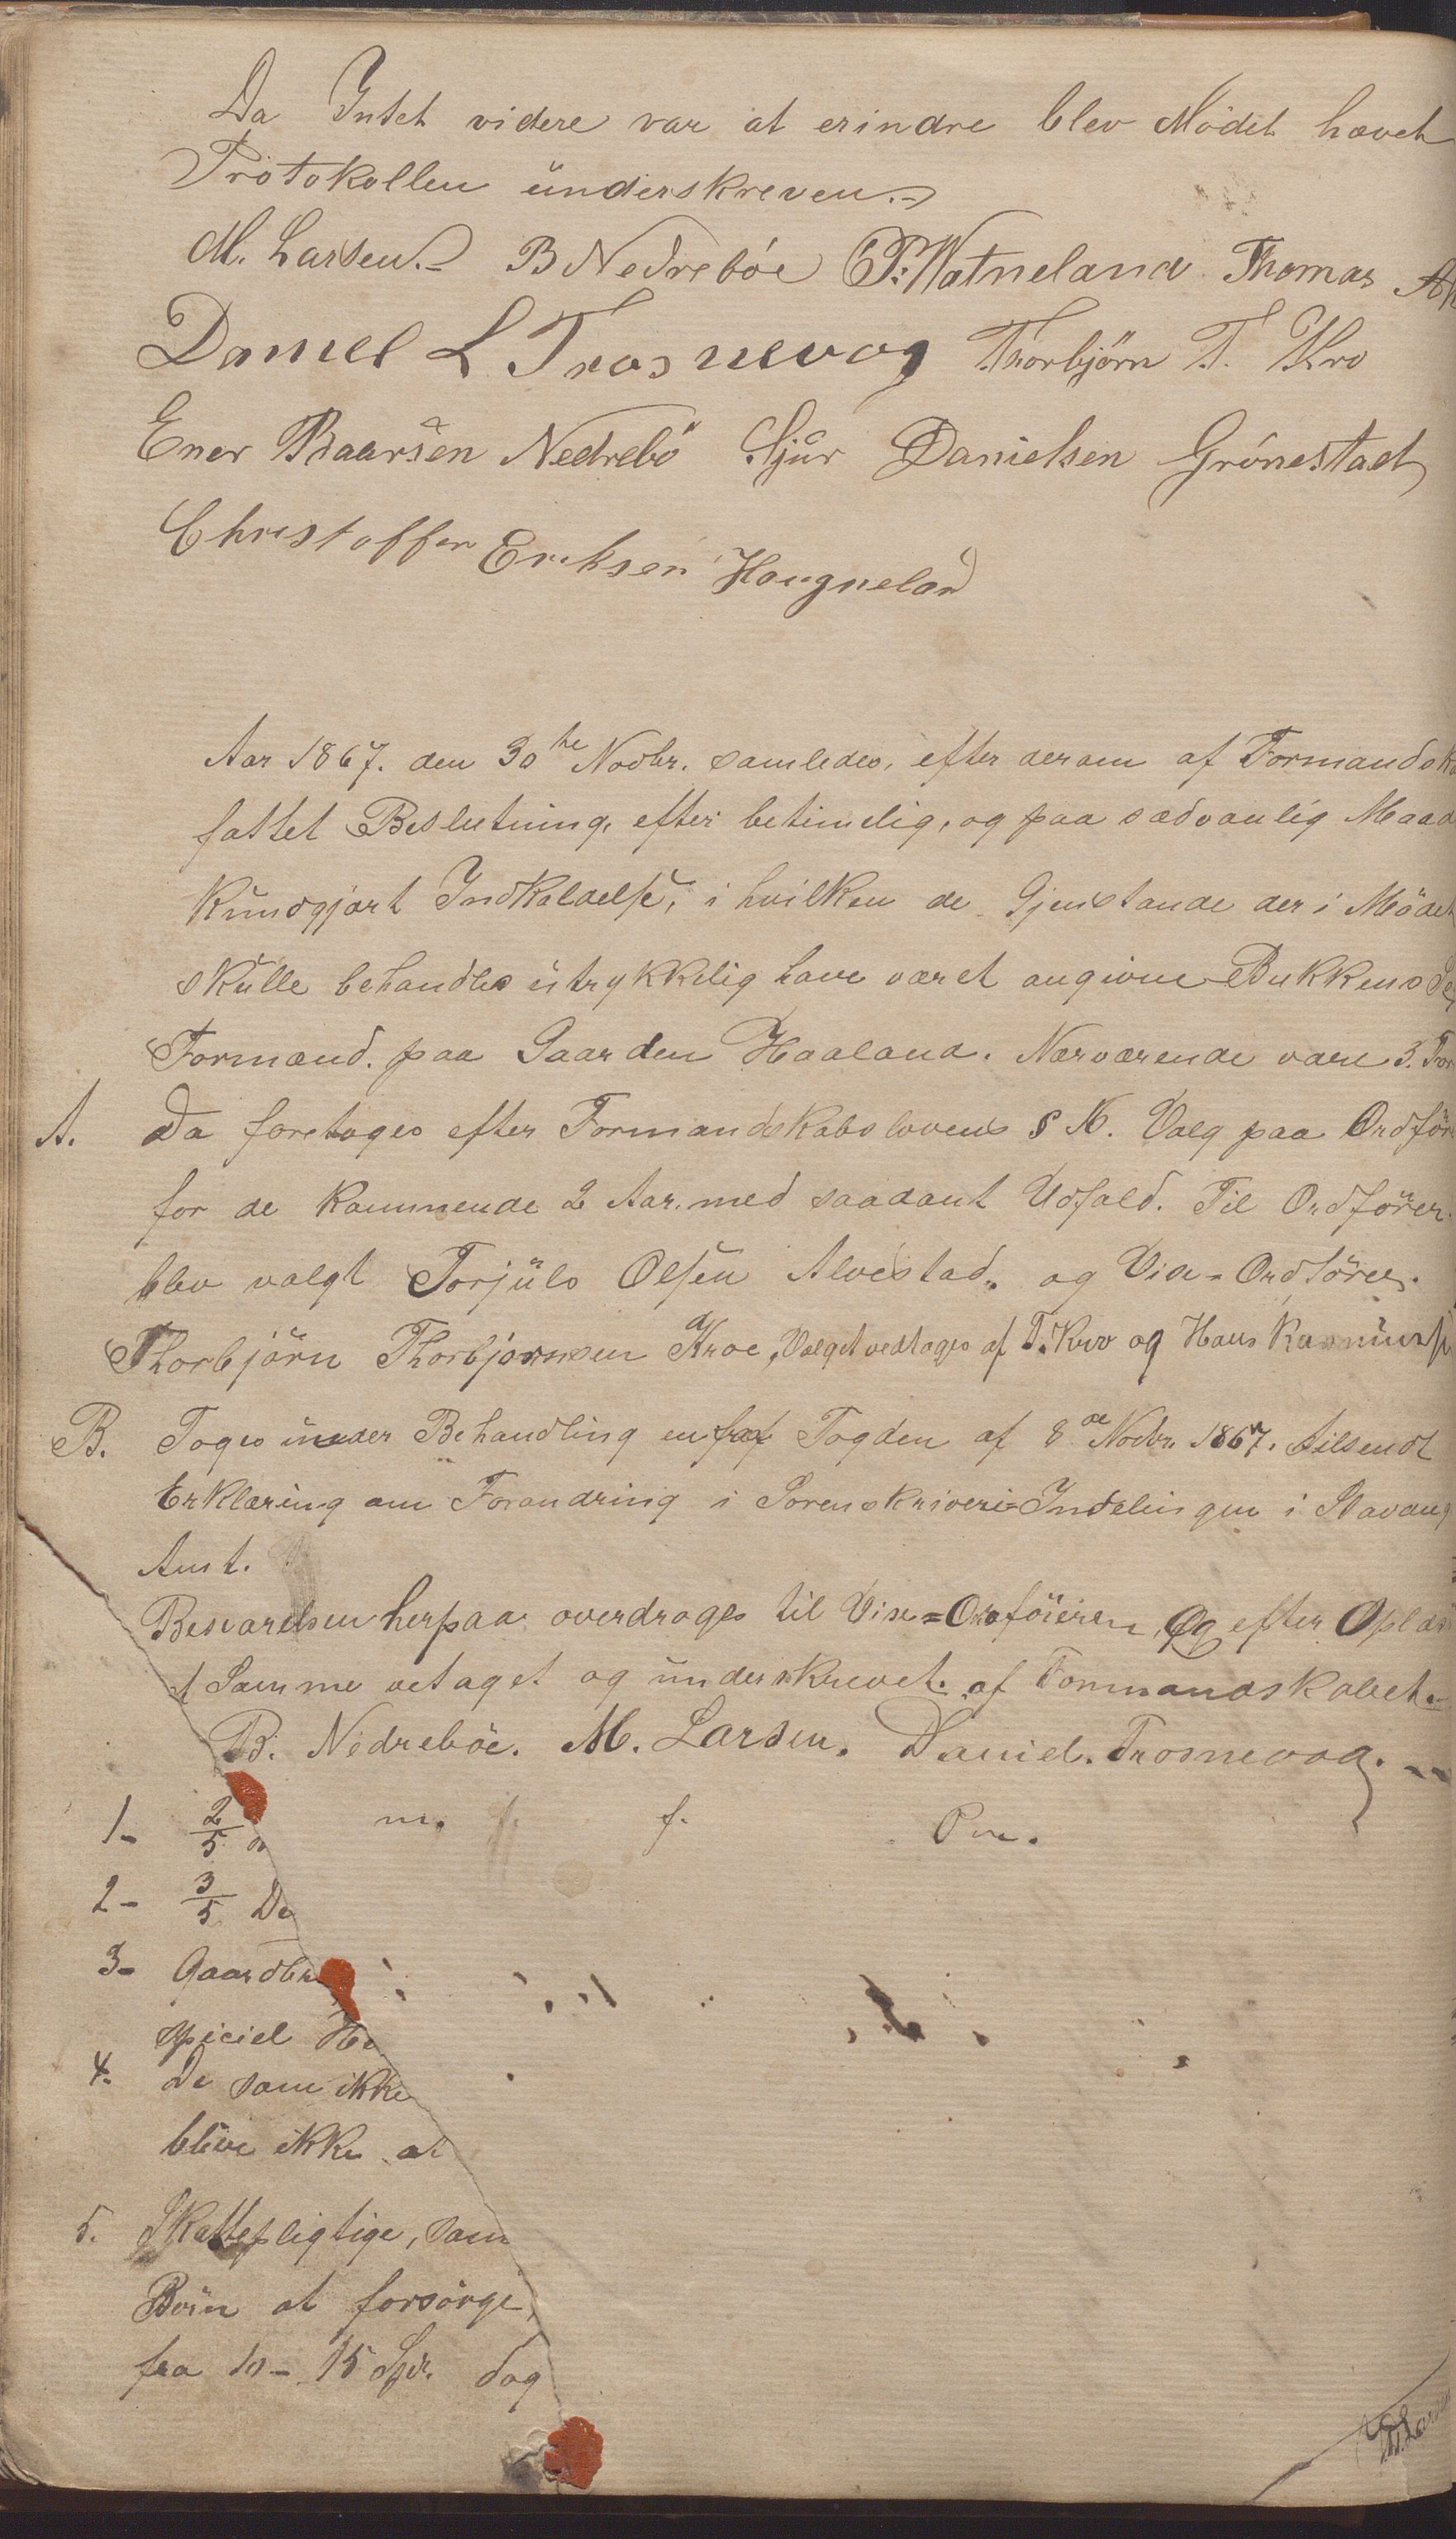 Da Intet videre var at erindre blev Mödet hævet
Protokollen underskreven.
M. Larsen. B Nedrebøe P. Watneland Thomas
Daniel L Trosnevog Thorbjörn T. Kro
Ener Baarsen Nedrebö Sjur Danielsen Grönestad
Christoffer Eriksen Haugneland
Aar 1867. den 30te Novbr. samledes, efter derom af Formandsk
fattet Beslutning, efter betimelig, og paa sædvanlig Maad
kundgjort Indkaldelse, i hvilken de Gjenstande der i Mödet
skulle behandles utrykkelig have været angivne Bukkens
Formænd. paa Gaarden Haaland. Nærværende vare 3. For
A. Da foretoges efter Formandskabslovens § Valg paa Ordför
for de kommende 2 Aar. med saadant Udfald. Til Ordförer
blev valgt Torjuls Olsen Alvestad. og Vise-Ordförer.
Thorbjörn Thorbjørnsen Kroe, Valget vedtoges af T. Kro og Hans Rasmus
B. Toges under Behandling en fra Fogden af 8de Novbr. 1867. tilsendt
Erklæring om Forandring i Sorenskriveri-Indelingen i Stavang
Amt.
Besvarelsen herpaa overdroges til Vise=Ordföreren, Og efter Oplæs
Samme vetaget og underskrevet. af Formandskabet.
B. Nedreböe. M. Larsen. Daniel. Trosnevog.
1- 2/5 m. f.
2- 3/5 De
3- Gaardbr
speciel He
4. De som ikke
blive ikke at
5. Skattepligtige, som
Börn at forsörge,
fra 10 - 15 Spd. dog